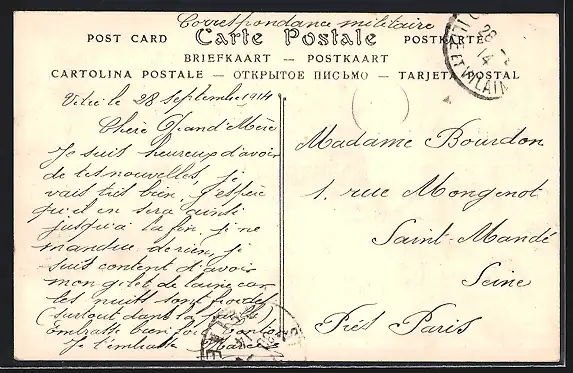 Correspondance militaire
POST CARD Carte Postale POSTKARTE
BRIEFKAART — POSTKAART
CARTOLINA POSTALE — ОТКРЫТОЕ ПИСЬМО — TARJETA POSTAL
ILLE ET VILAINE
28
14
Vitré le 28 Septembre 1914
Chère Grand'Mère
Je suis heureux d'avoir
de tes nouvelles, je
vais très bien, j'espère
qu'il en sera ainsi
jusqu'à la fin, je ne
manque de rien, je
suis content d'avoir
mon gilet de laine car
les nuits sont froides
(surtout dans la paille)
Embrasse bien
Je t'embrasse Marcel
Madame Bourdon
1. rue Mongenot
Saint-Mandé
Seine
Près Paris